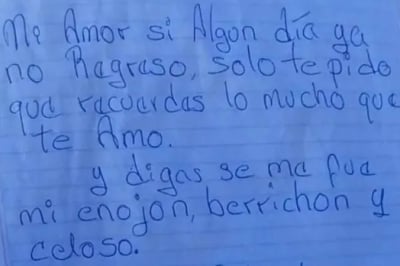 Me Amor si Algon día ya
no Ragraso, solo te pido
qua racuardas lo mucho qua
te Amo.
y digas se ma fua
mi enojon, berrichon y
celoso.